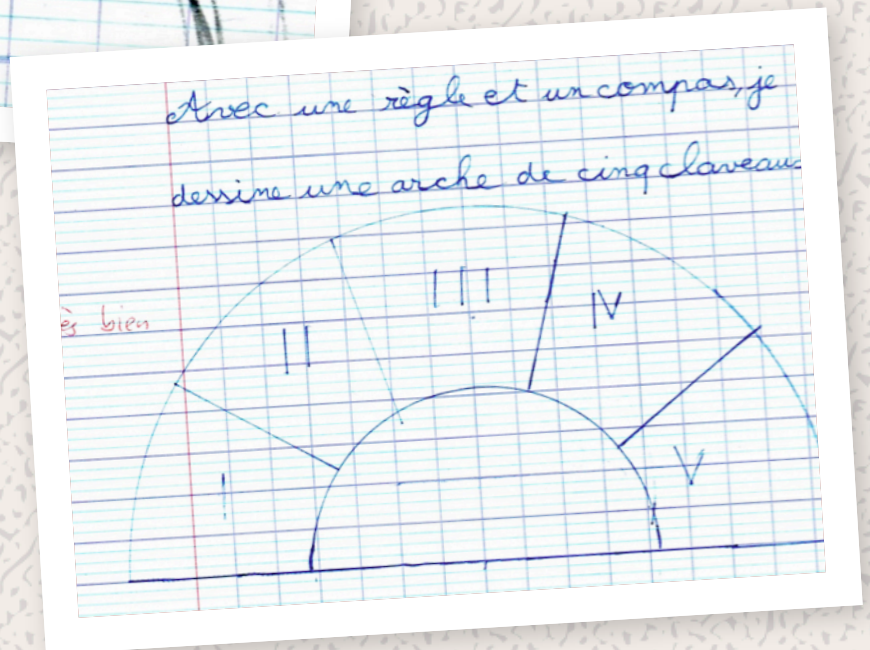 Avec une règle et un compas, je
dessine une arche de cinq claveau
III
IV
ès bien
II
V
I